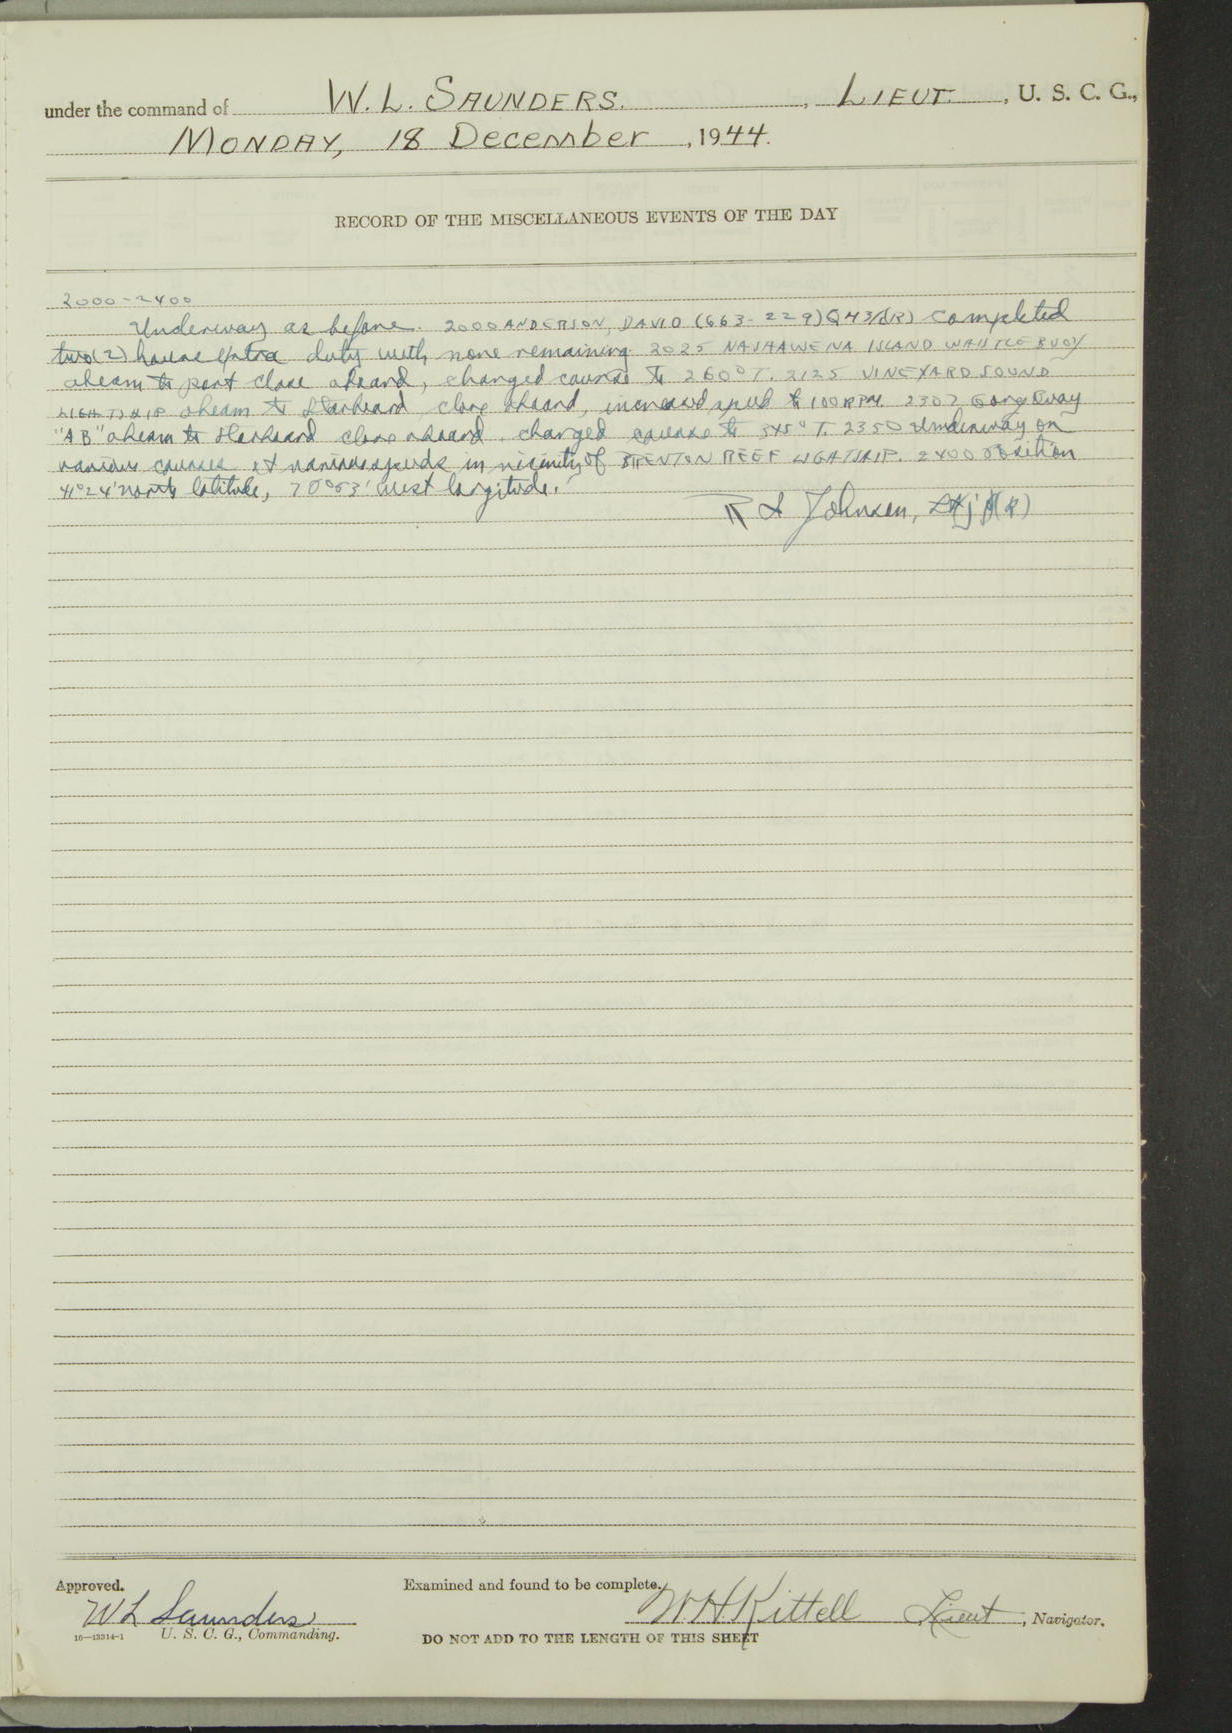 under the command of W. L. SAUNDERS. , LIEUT. , U. S. C. G.,
MONDAY, 18 December , 1944.
RECORD OF THE MISCELLANEOUS EVENTS OF THE DAY
2000-2400
Underway as before. 2000 ANDERSON, DAVID (663-229) (R) completed
two (2) hours extra duty with none remaining 2025 NASHAWENA ISLAND WHISTLE BUOY
abeam to port close aboard, changed course to 260° T. 2125 VINEYARD SOUND
LIGHTSHIP abeam to starboard close aboard, increased speed to 100 RPM. 2307 Gong Buoy
"AB" abeam to starboard close aboard. changed course to 345° T. 2350 Underway on
various courses at various speeds in vicinity of BRENTON REEF LIGHTSHIP. 2400 Position
41°24' north latitude, 70°53' west longitude.
Johnson, (R)
Approved. Examined and found to be complete.
W L Saunders W. H Kittell Lieut , Navigator.
16—13314-1 U. S. C. G., Commanding.
DO NOT ADD TO THE LENGTH OF THIS SHEET